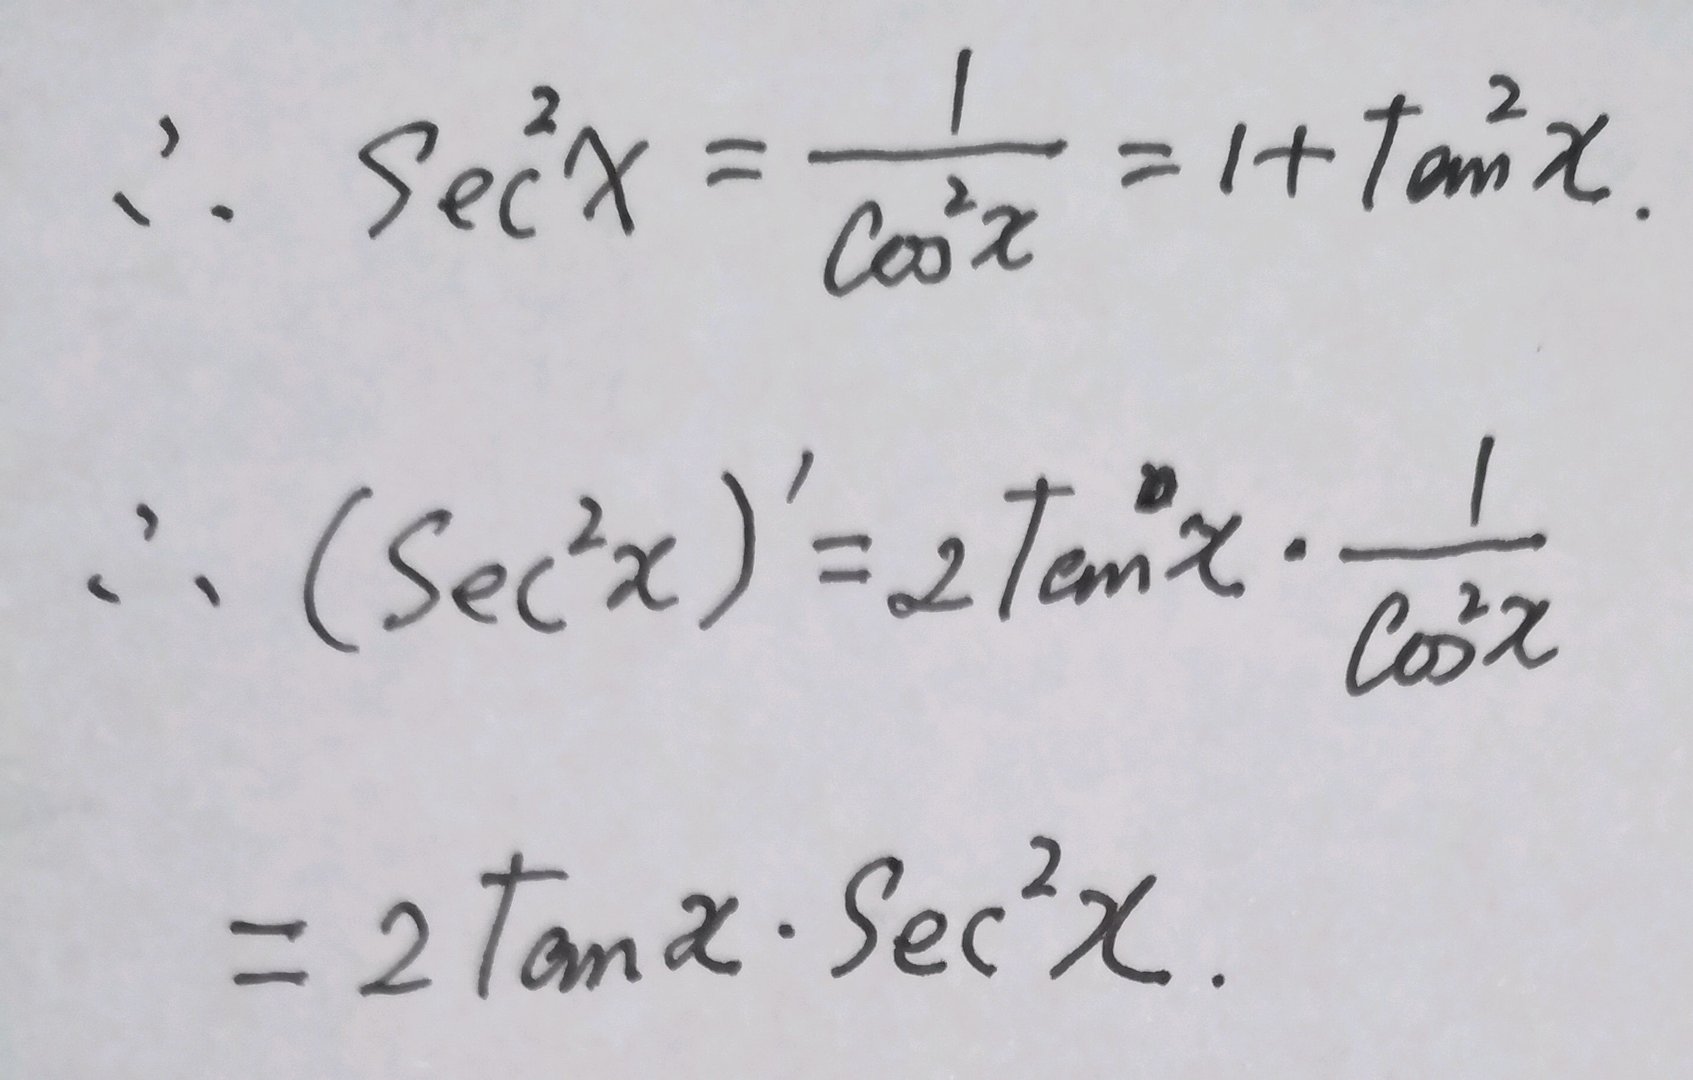 ∴ Sec²x = 1/Cos²x = 1 + Tan²x.
∴ (Sec²x)' = 2 Tan x · 1/Cos²x
= 2 Tan x · Sec²x.